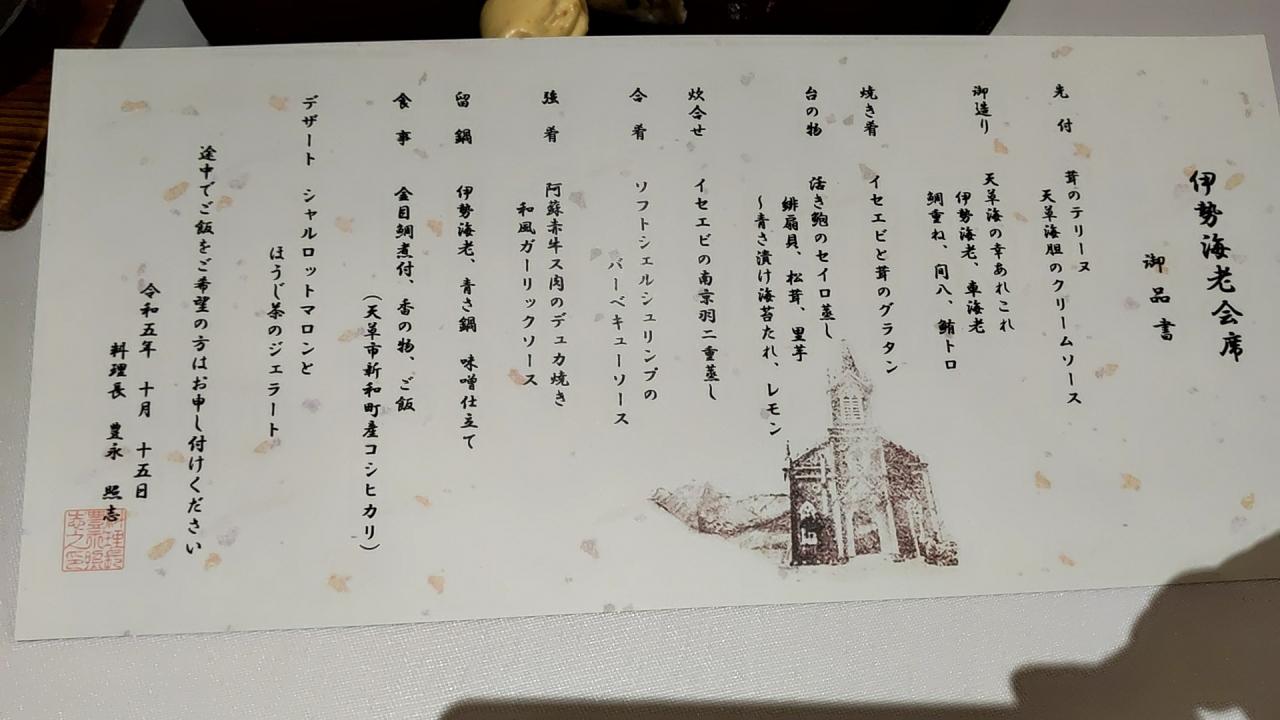 伊勢海老会席
御品書
先付 茸のテリーヌ
天草海胆のクリームソース
御造り 天草海の幸あれこれ
伊勢海老、車海老
鯛重ね、間八、鮪トロ
焼き肴 イセエビと茸のグラタン
台の物 活き鮑のセイロ蒸し
緋扇貝、松茸、里芋
~青さ漬け海苔たれ、レモン
炊合せ イセエビの南京羽二重蒸し
合肴 ソフトシェルシュリンプの
バーベキューソース
強肴 阿蘇赤牛ス肉のデュカ焼き
和風ガーリックソース
留鍋 伊勢海老、青さ鍋 味噌仕立て
食事 金目鯛煮付、香の物、ご飯
(天草市新和町産コシヒカリ)
デザート シャルロットマロンと
ほうじ茶のジェラート
途中でご飯をご希望の方はお申し付けください
令和五年 十月 十五日
料理長 豊永 照志
料理長
豊永照
志之印